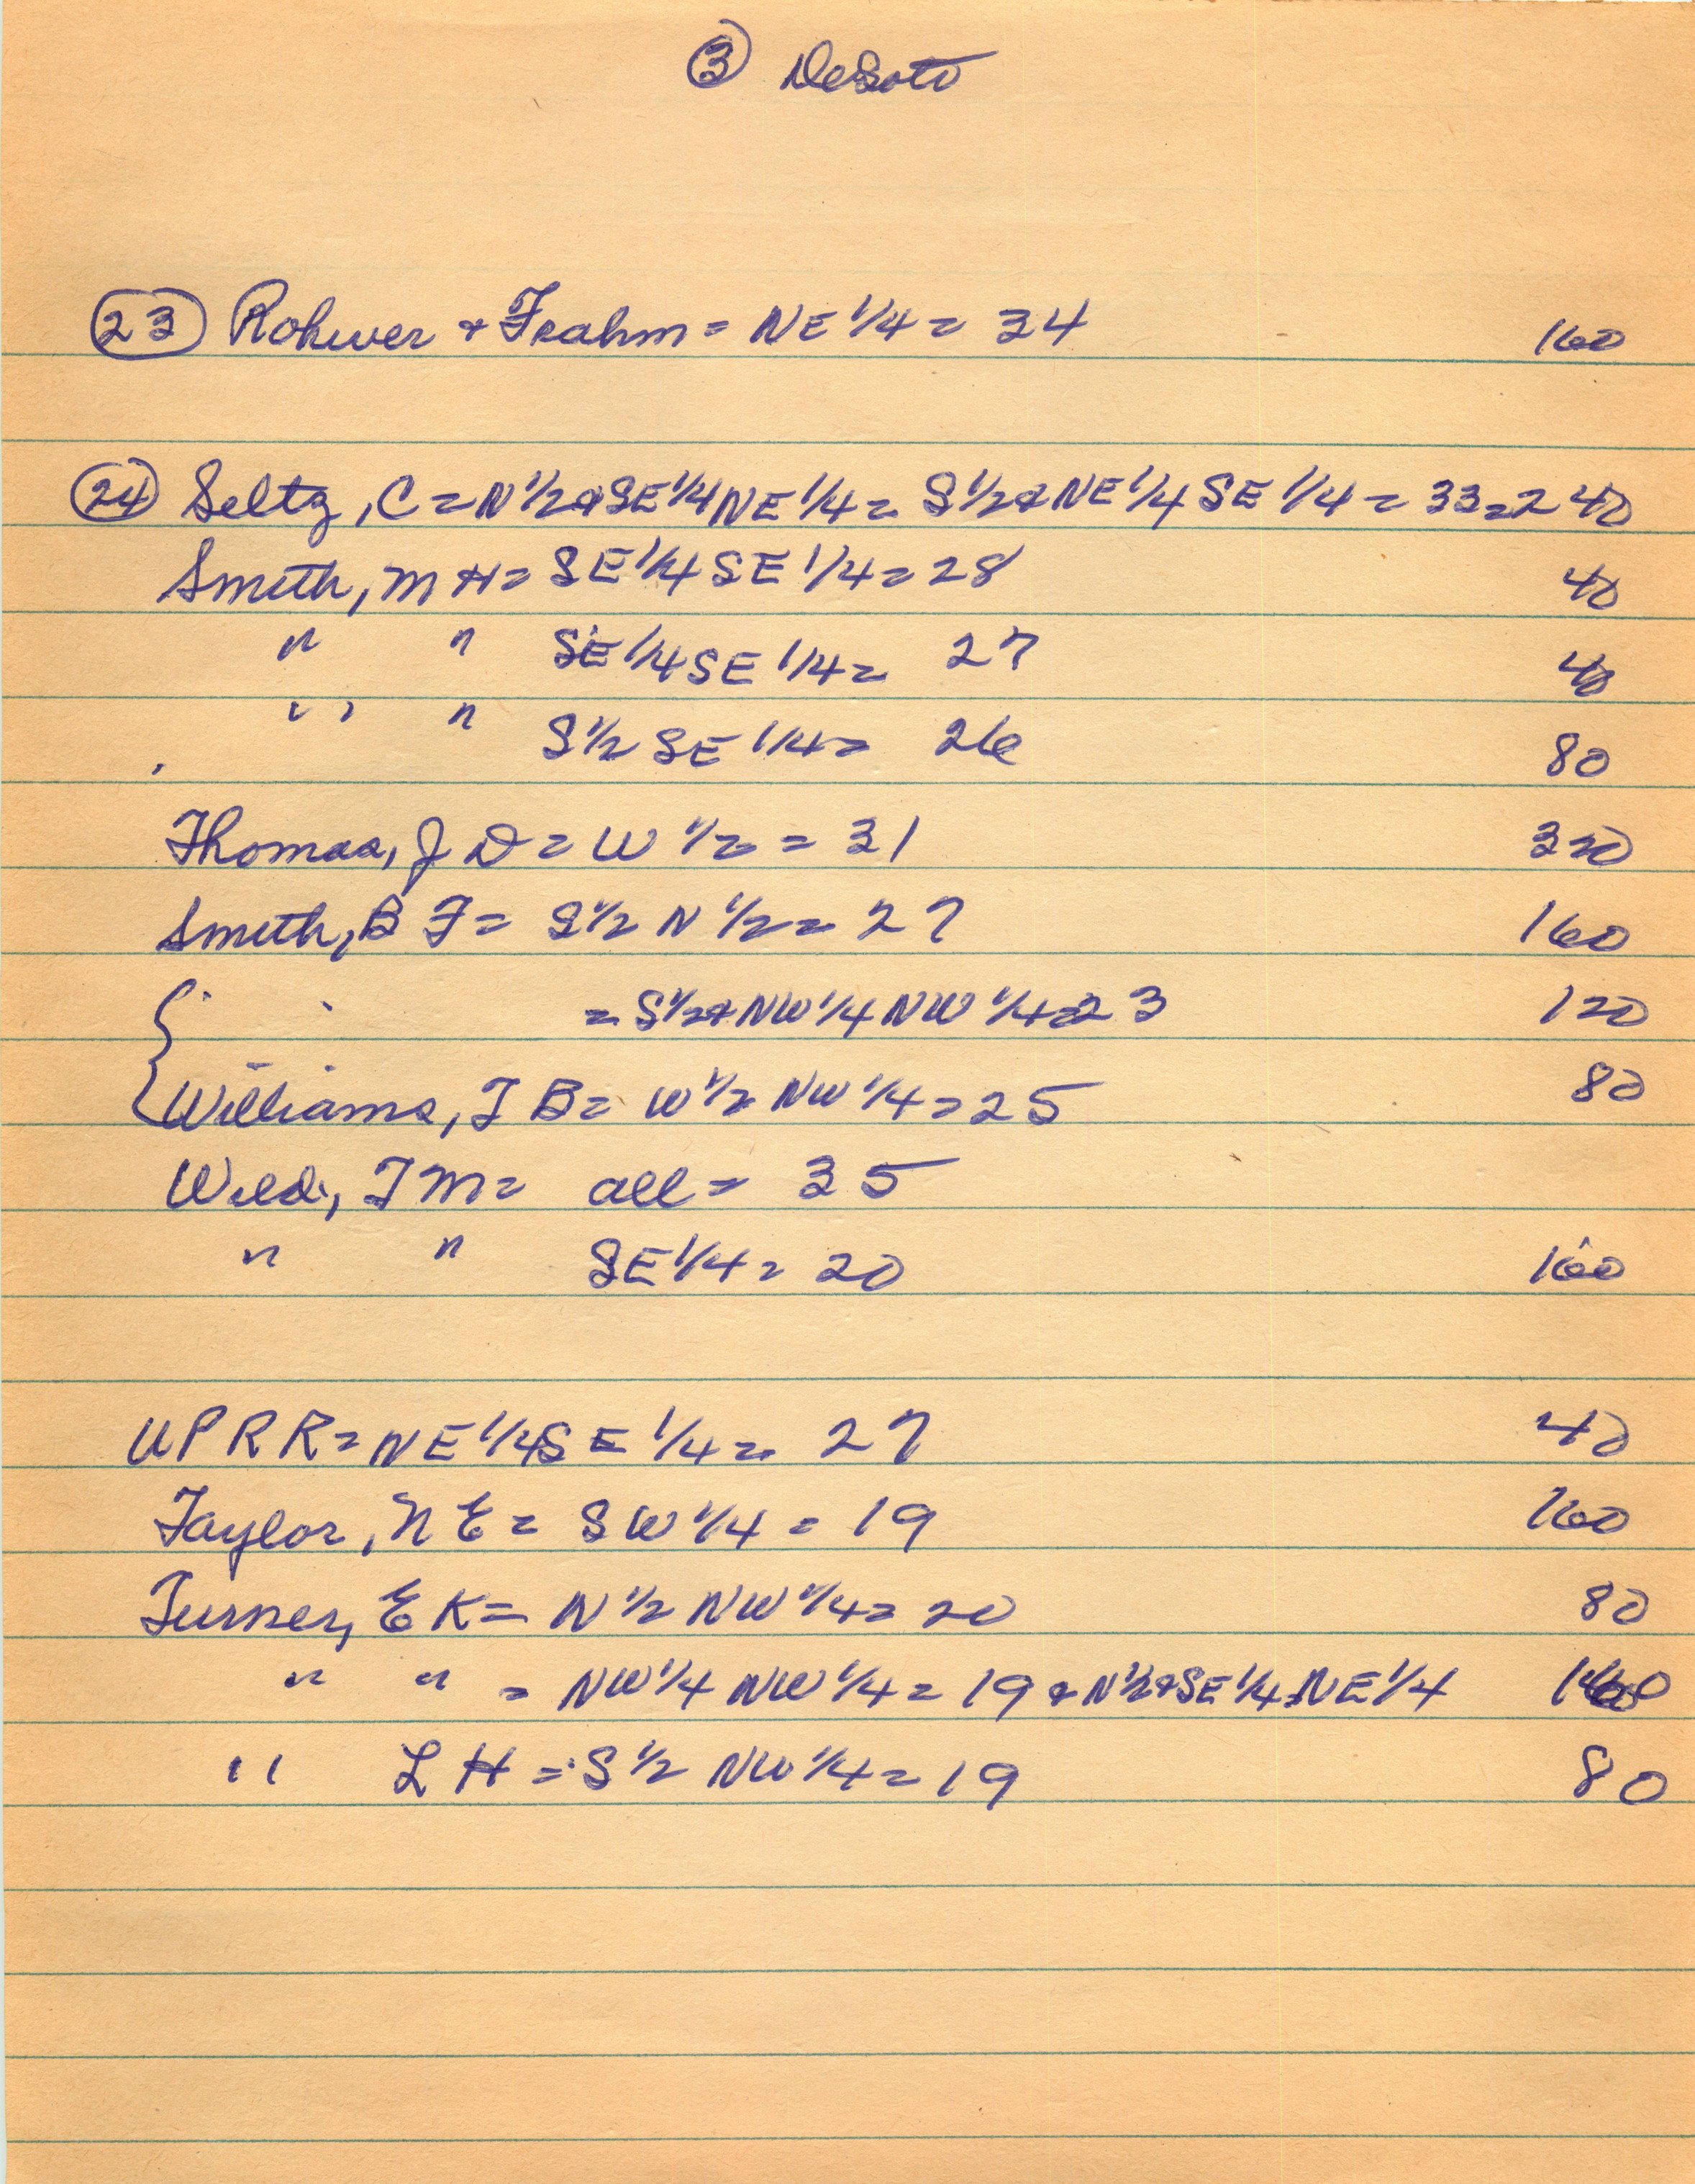 ③ DeSoto
㉓ Rohwer & Frahm = NE 1/4 = 34 160
㉔ Seltz, C = N 1/2 & SE 1/4 NE 1/4 = S 1/2 & NE 1/4 SE 1/4 = 33 = 240
Smith, M H = SE 1/4 SE 1/4 = 28 40
" " SE 1/4 SE 1/4 = 27 40
" " S 1/2 SE 1/4 = 26 80
Thomas, J D = W 1/2 = 31 320
Smith, B F = S 1/2 N 1/2 = 27 160
= S 1/2 & NW 1/4 NW 1/4 = 23 120
Williams, T B = W 1/2 NW 1/4 = 25 80
Wild, T M = all = 35
" " SE 1/4 = 20 160
U P R R = NE 1/4 SE 1/4 = 27 40
Taylor, N E = SW 1/4 = 19 160
Turner, E K = N 1/2 NW 1/4 = 20 80
" " = NW 1/4 NW 1/4 = 19 & N 1/2 & SE 1/4 NE 1/4 160
" L H = S 1/2 NW 1/4 = 19 80